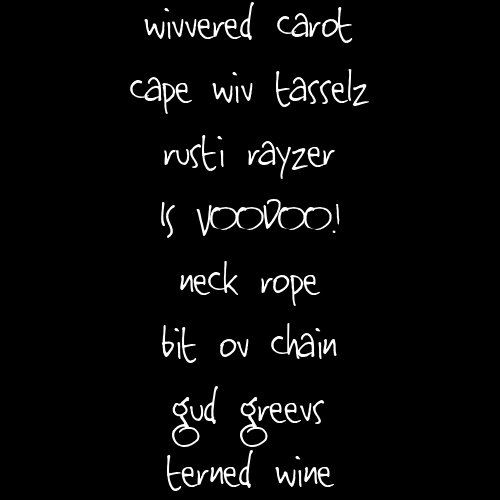 wivvered carot
cape wiv tasselz
rusti rayzer
Is VOODOO!
neck rope
bit ov chain
gud greevs
terned wine